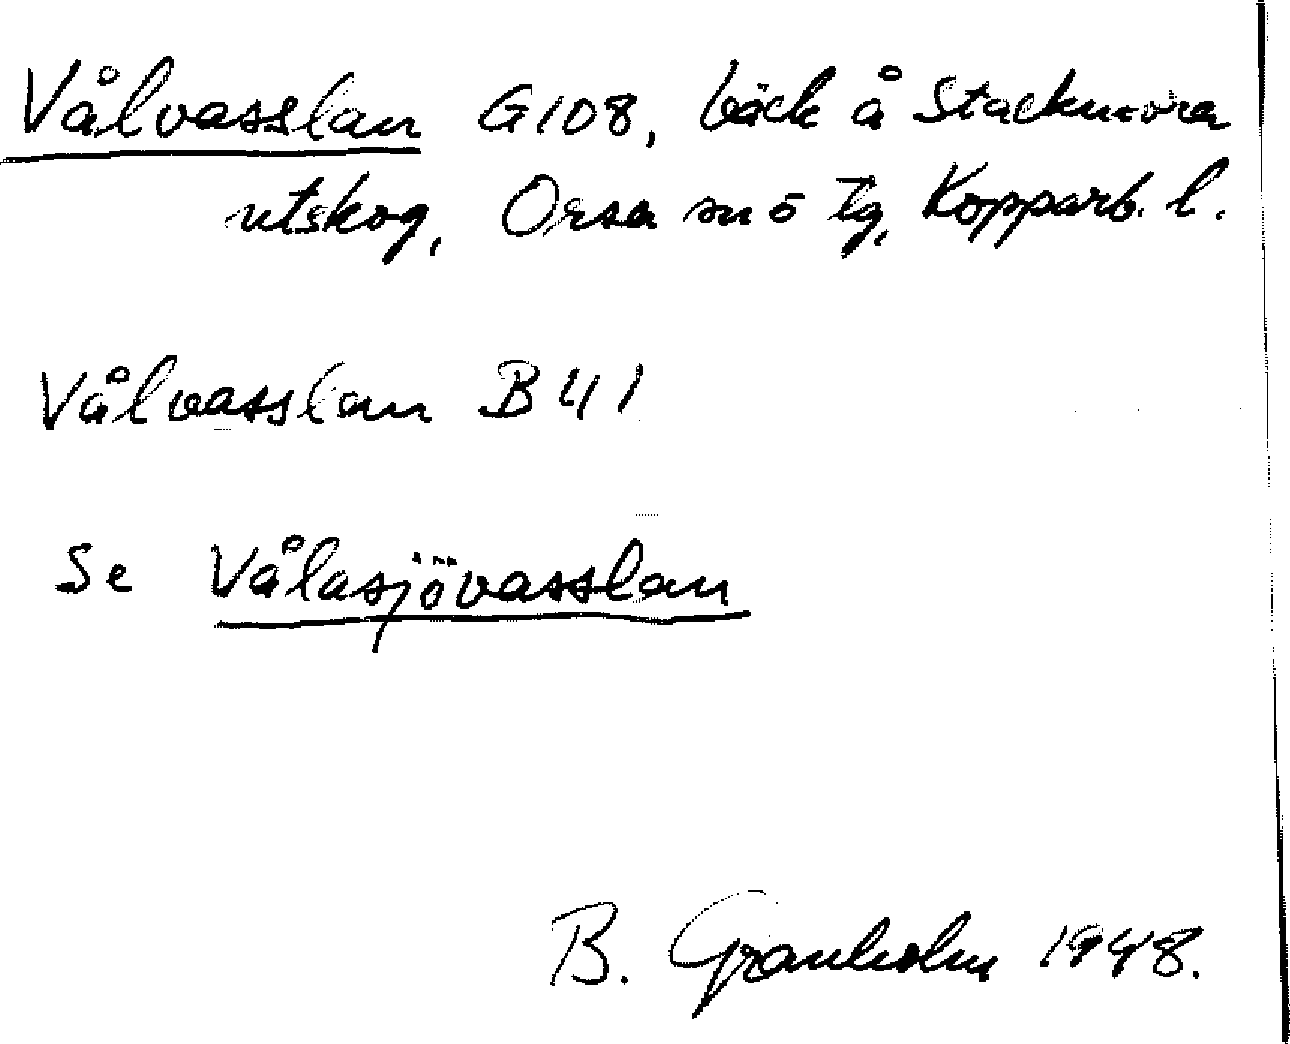 Vålvasslan G108, bäck å Stackmora
utskog, Orsa sn o tg, Kopparb. l.
Vålvasslan B41
Se Vålasjövasslan
B. Granholm 1948.